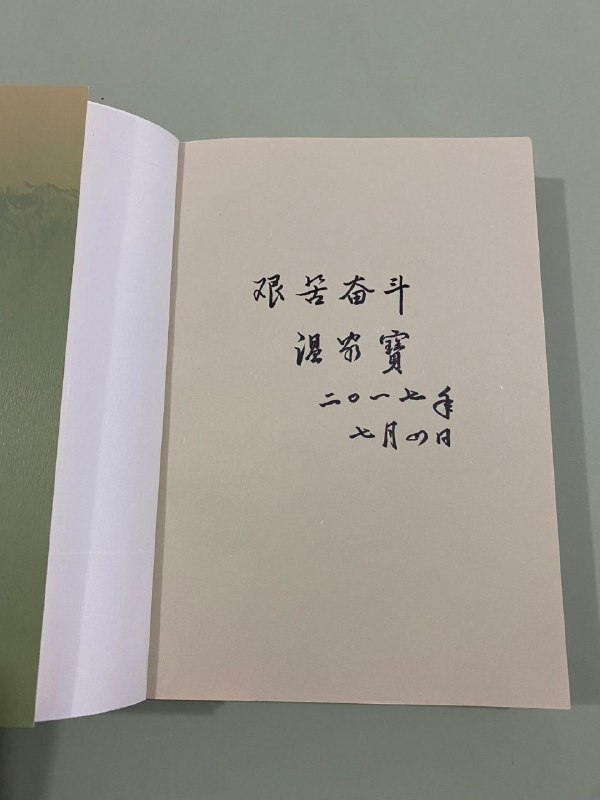 艰苦奋斗
温家寶
二〇一七年
七月四日